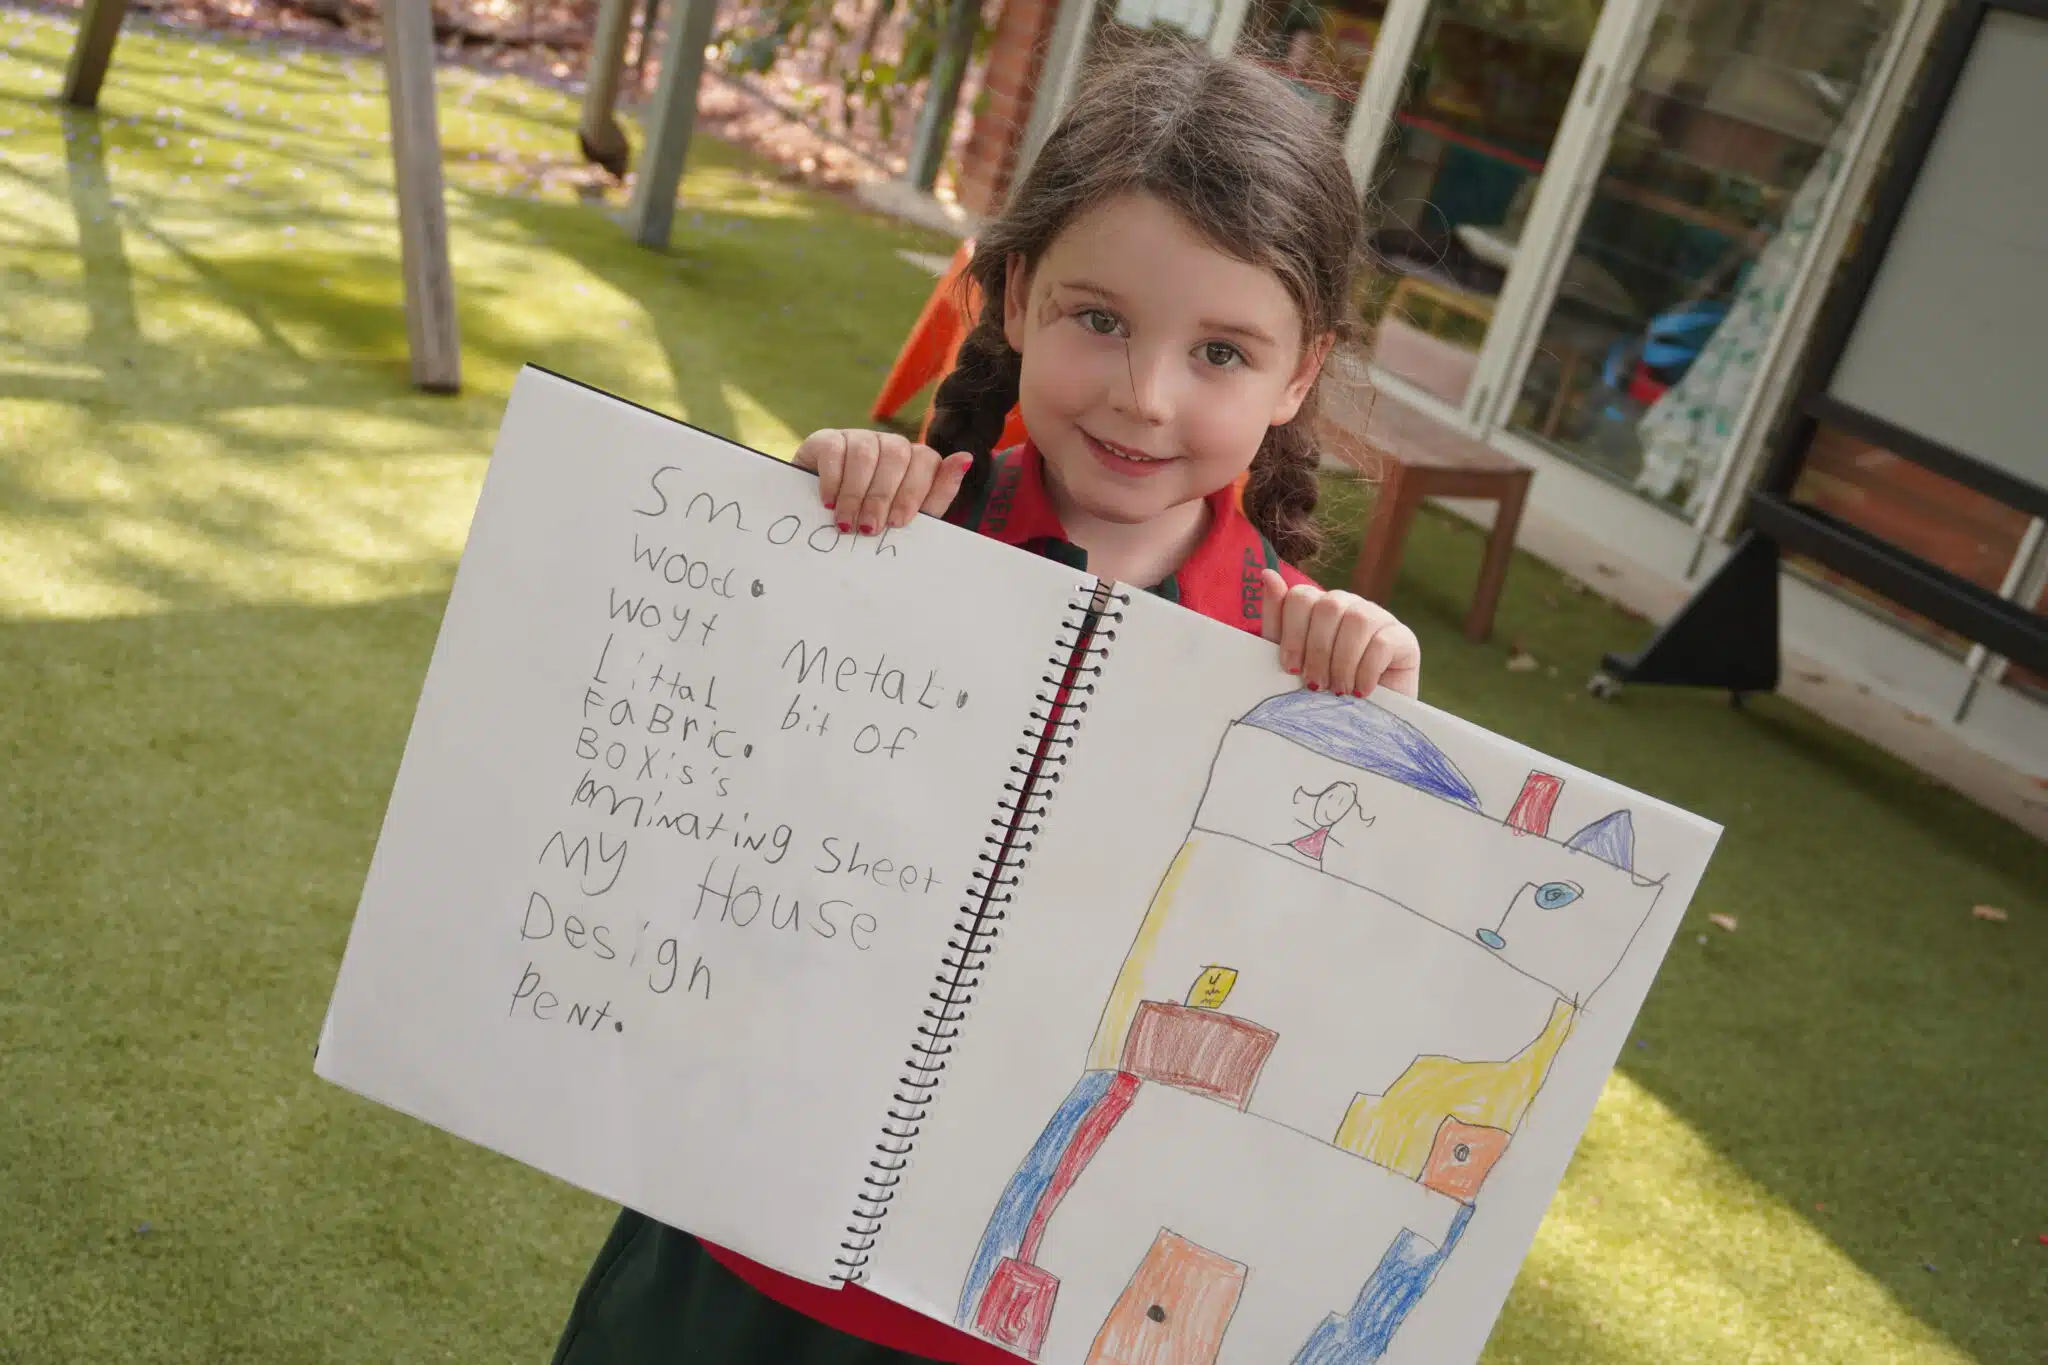 Smooth
wood.
woyt Metal.
Littal bit of
FaBric.
BOXis's
laminating Sheet
My House
Design
Pent.
PREP
PREP